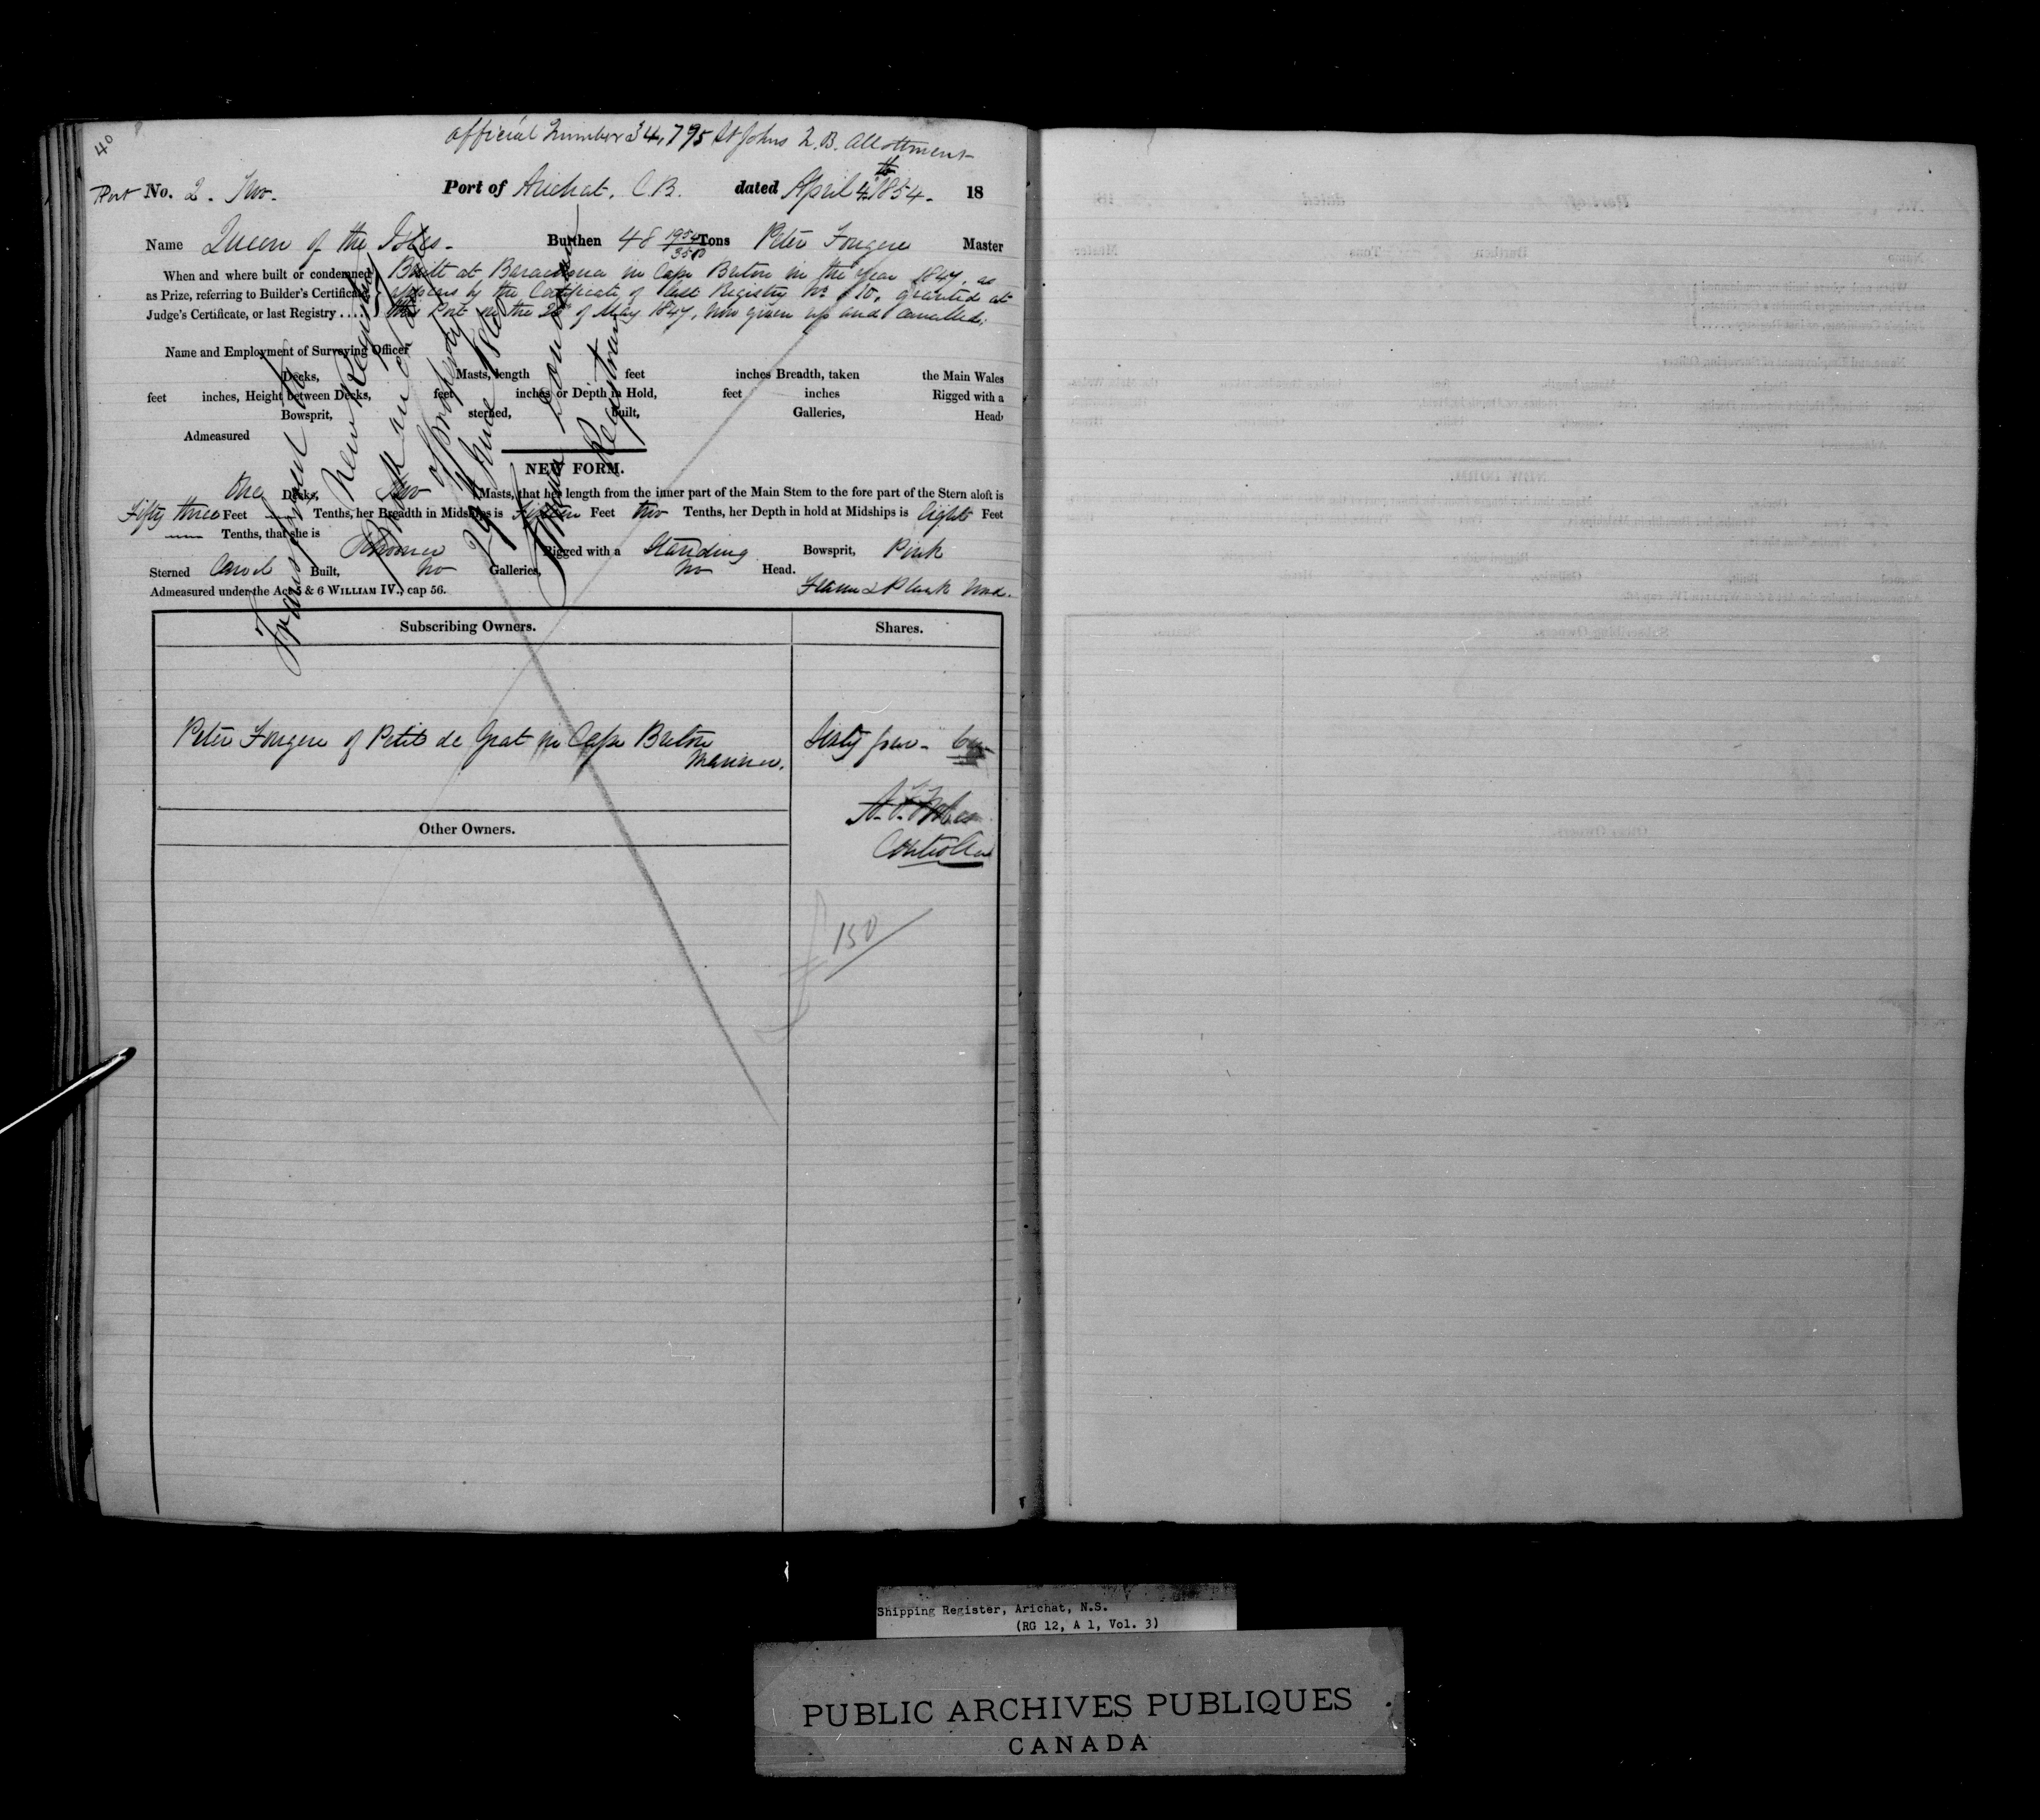 40
official Number 34,795 St Johns N.B. Allotment
Port No. 2. Two. Port of Arichat. C B. dated April 4th 1854. 18
Name Queen of the Isles. Burthen 48 1954/3500 Tons Peter Fougere Master
When and where built or condemned as Prize, referring to Builder's Certificate, Judge's Certificate, or last Registry ....
Built at in Cape Breton in the Year 1847, as
appears by the Certificate of last Registry No 10, granted at
this Port on the of May 1847, now given up and cancelled.
Name and Employment of Surveying Officer
Decks, Masts, length feet inches Breadth, taken the Main Wales
feet inches, Height between Decks, feet inches or Depth in Hold, feet inches Rigged with a
Bowsprit, sterned, built, Galleries, Head,
Admeasured
NEW FORM.
One Decks, Two Masts, that her length from the inner part of the Main Stem to the fore part of the Stern aloft is
Fifty three Feet Tenths, her Breadth in Midships is Fifteen Feet two Tenths, her Depth in hold at Midships is Eight Feet
Tenths, that she is Schooner Rigged with a Standing Bowsprit, Pink
Sterned Carvel Built, No Galleries, No Head.
Admeasured under the Act 5 & 6 WILLIAM IV., cap 56. Frame & Plank Wood.
Transferred to
New Registry
Book on change
of property
29 June 18
Registrar
Subscribing Owners. Shares.
Peter Fougere of Petit de Grat in Cape Breton Sixty four - 64
Mariner.
Controller
Other Owners.
£150
Shipping Register, Arichat, N.S.
(RG 12, A 1, Vol. 3)
PUBLIC ARCHIVES PUBLIQUES
CANADA